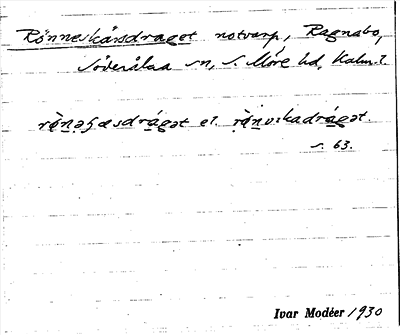 Rönneskärsdraget notvarp, Ragnabo,
Söderåkra sn, S. Möre hd, Kalm. l.
el.
s. 63.
Ivar Modéer 1930